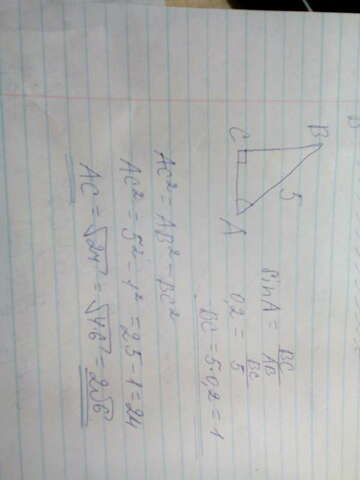 B
5
C
A
sin A = BC/AB
0,2 = BC/5
BC = 5·0,2 = 1
AC² = AB² - BC²
AC² = 5² - 1² = 25 - 1 = 24
AC = √24 = √4·6 = 2√6